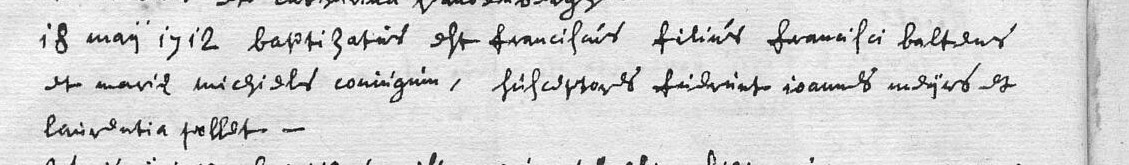 et catharina vandenbergh
18 maÿ 1712 baptizatus est franciscus filius francisci baltens
et mariæ michiels coniugum, susceptores fuerunt ioannes meÿrs et
laurentia pellet –